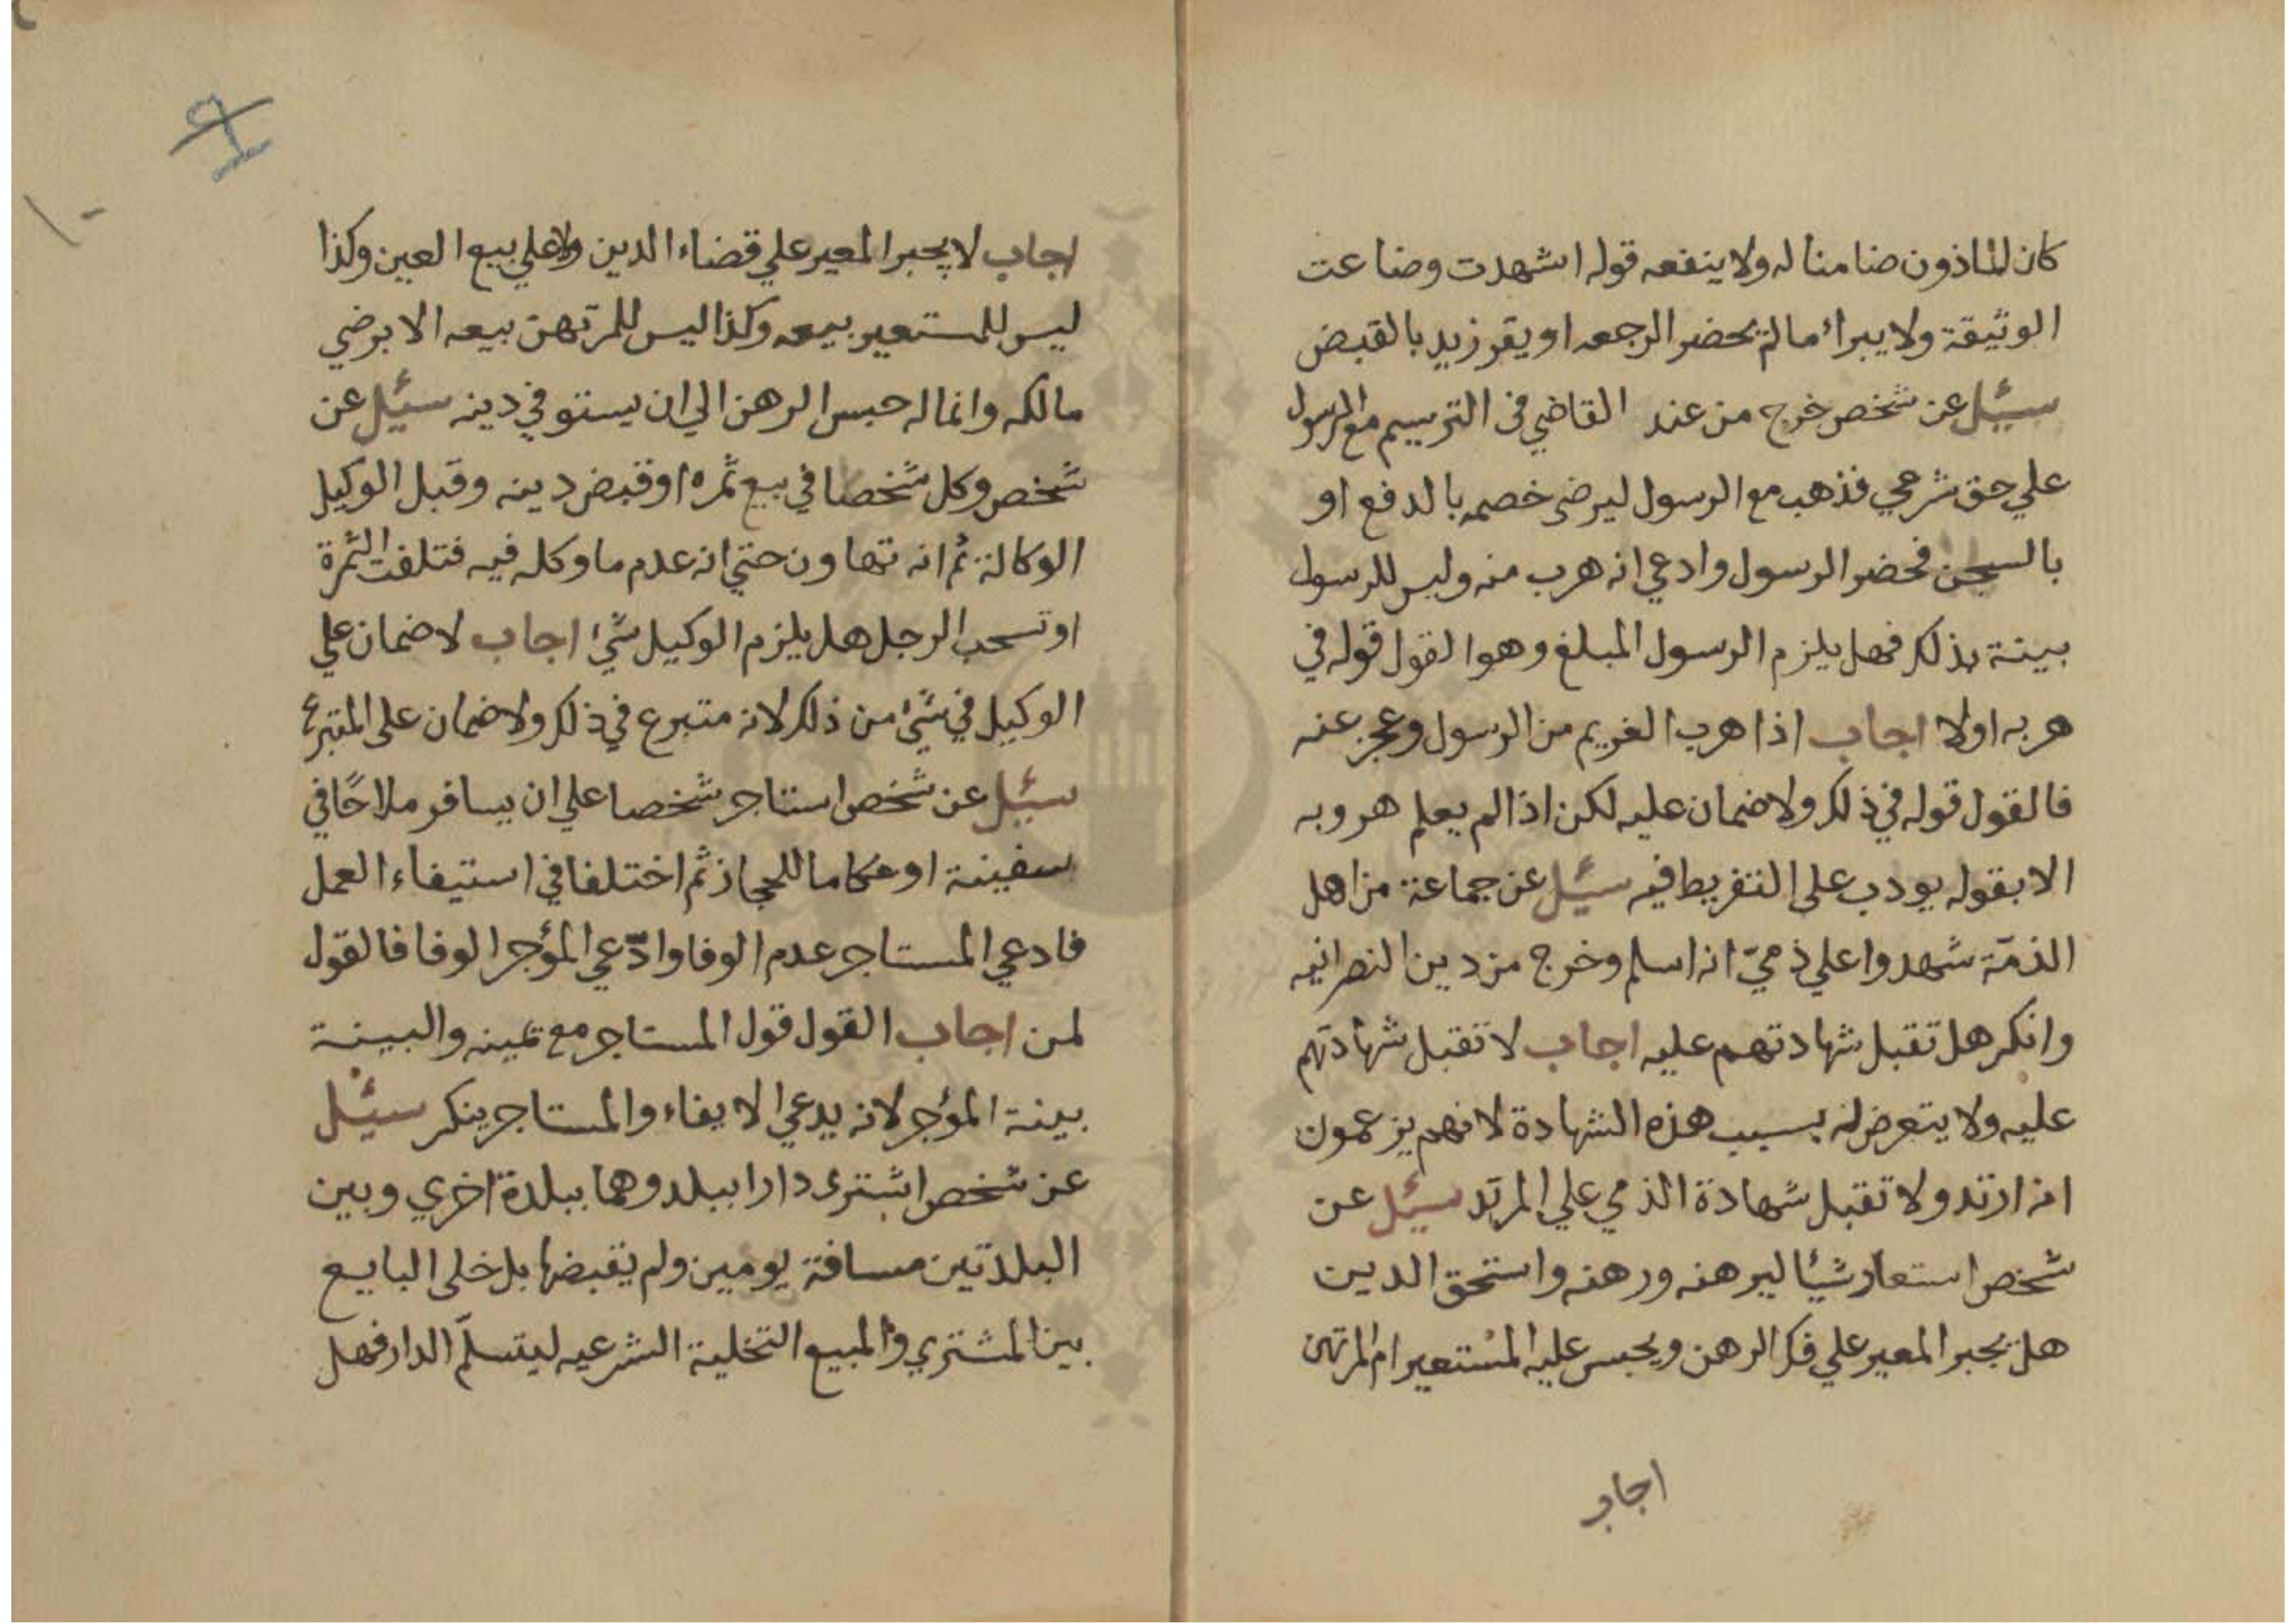 كان الماذون ضامنا له ولا ينفعه قوله اشهدت وضاعت
الوثيقة ولا يبرأ مالم يحضر الرجعه او يقر زيد بالقبض
سئيل عن شخص خرج من عند القاضي في الترسيم مع الرسول
علي حق شرعي فذهب مع الرسول ليرضي خصمه بالدفع او
بالسجن فحضر الرسول وادعي انه هرب منه وليس للرسول
بينة بذلك فهل يلزم الرسول المبلغ وهو القول قوله في
هربه اولا اجاب اذا هرب الغريم من الرسول وعجز عنه
فالقول قوله في ذلك ولا ضمان عليه لكن اذا لم يعلم هروبه
الا بقوله يودب على التفريط فيه سئيل عن جماعة من اهل
الذمّة شهدوا علي ذميّ انه اسلم وخرج من دين النصرانيه
وانكر هل تقبل شهادتهم عليه اجاب لا تقبل شهادتهم
عليه ولا يتعرض له بسبب هذه الشهادة لانهم يزعمون
انه ارتد ولا تقبل شهادة الذمي علي المرتد سئيل عن
شخص استعار شيئا ليرهنه ورهنه واستحق الدين
هل يجبر المعير علي فك الرهن ويحبس عليه المستعير ام المرتهن
اجاب
اجاب لا يجبر المعير علي قضاء الدين ولا علي بيع العين وكذا
ليس للمستعير بيعه وكذا ليس للمرتهن بيعه الا برضي
مالكه وانما له حبس الرهن الي ان يستوفي دينه سئيل عن
شخص وكل شخصا في بيع ثمره او قبض دينه وقبل الوكيل
الوكالة ثم انه تهاون حتي انه عدم ما وكله فيه فتلفت الثمرة
او تسحب الرجل هل يلزم الوكيل شئ اجاب لا ضمان علي
الوكيل في شئ من ذلك لانه متبرع في ذلك ولا ضمان على المتبرع
سئيل عن شخص استاجر شخصا علي ان يسافر ملاحًا في
سفينة او عكاما للحجاز ثم اختلفا في استيفاء العمل
فادعي المستاجر عدم الوفا وادّعي المؤجر الوفا فالقول
لمن اجاب القول قول المستاجر مع يمينه والبينة
بينة المؤجر لانه يدعي الايفاء والمستاجر ينكر سئيل
عن شخص اشترى دارا ببلد وهما ببلدة اخري وبين
البلدتين مسافة يومين ولم يقبضها بل خلى البايع
بين المشتري والمبيع التخلية الشرعيه ليتسلّم الدار فهل